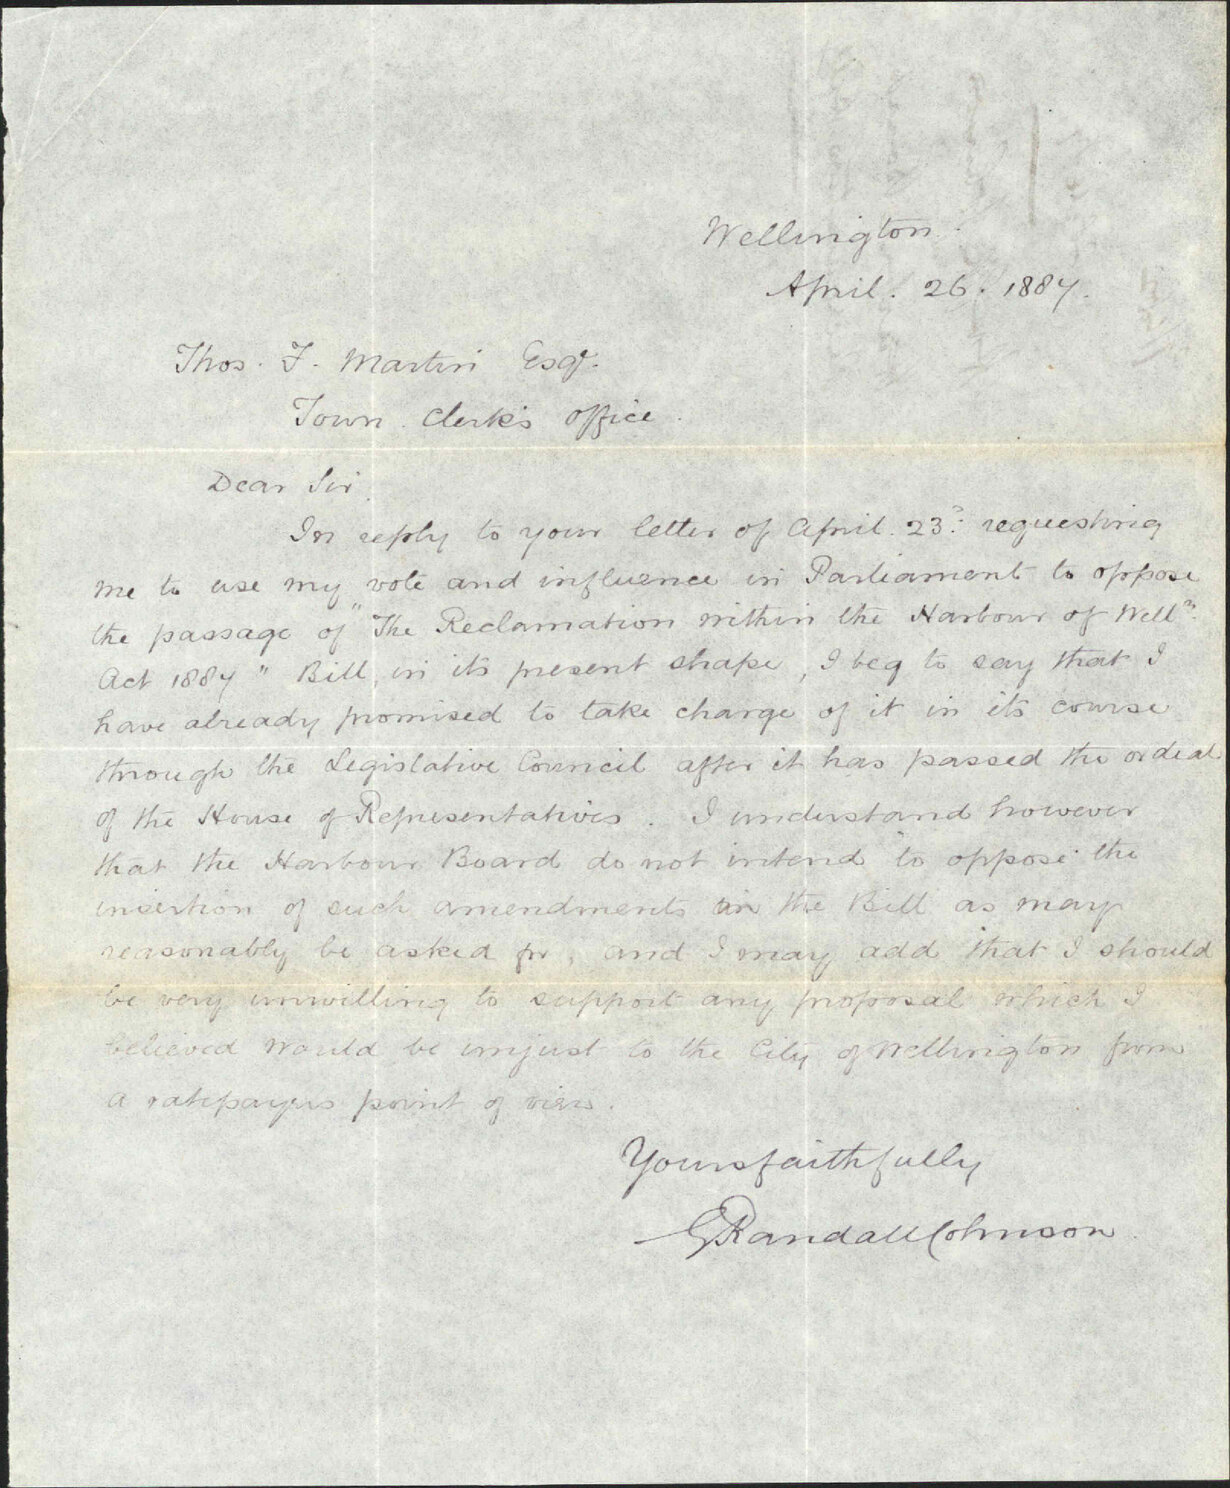 Wellington.
April. 26. 1887.
Thos. F. Martin Esqr.
Town Clerk's Office.
Dear Sir.
In reply to your letter of April. 23d: requesting
me to use my vote and influence in Parliament to oppose
the passage of "The Reclamation within the Harbour of Welln.
Act 1887" Bill, in its present shape, I beg to say that I
have already promised to take charge of it in its course
through the Legislative Council after it has passed the ordeal
of the House of Representatives. I understand however
that the Harbour Board do not intend to oppose the
insertion of such amendments in the Bill as may
reasonably be asked for, and I may add that I should
be very unwilling to support any proposal which I
believed would be unjust to the City of Wellington from
a ratepayers point of view.
Yours faithfully
G Randall Johnson.